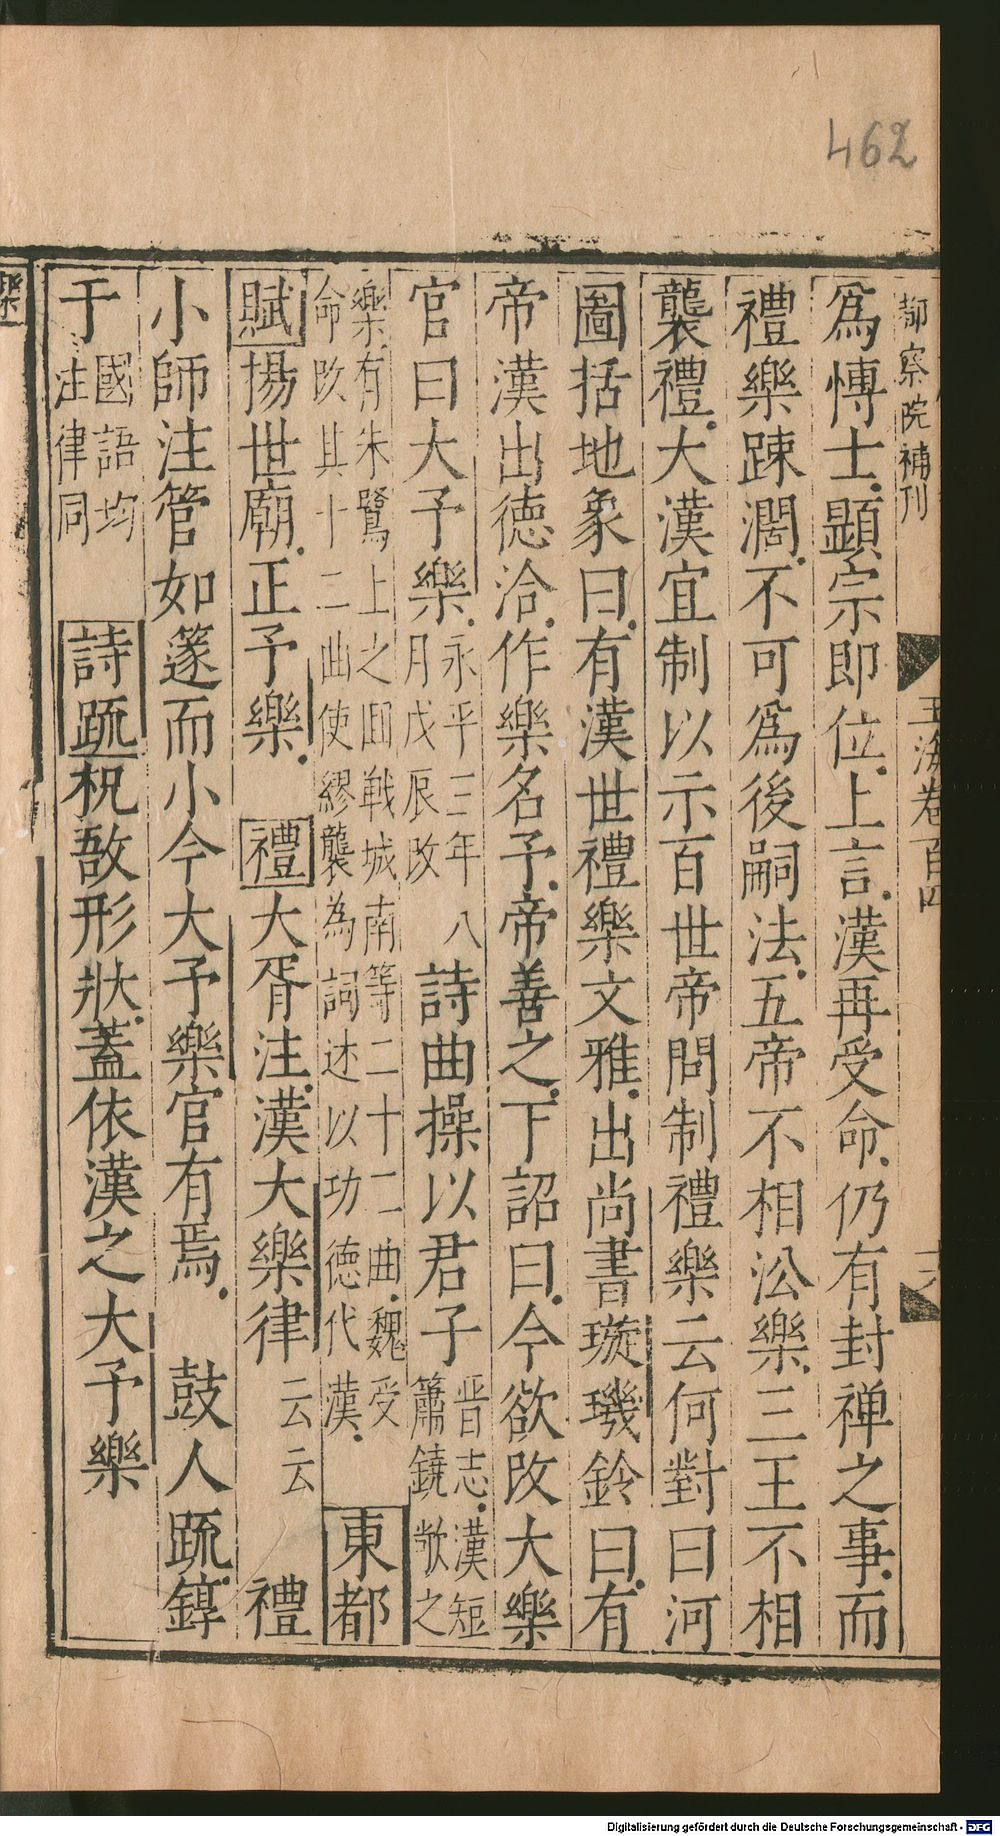 462
都察院補刊
玉海卷百四
十六
爲博士顯宗即位上言漢再受命仍有封禅之事而
禮樂踈濶不可爲後嗣法五帝不相沿樂三王不相
襲禮大漢宜制以示百世帝問制禮樂云何對曰河
圖括地象曰有漢世禮樂文雅出尚書璇璣鈴曰有
帝漢出徳洽作樂名予帝善之下詔曰今欲改大樂
官曰大予樂永平三年八月戊辰改詩曲操以君子晉志漢短簫鐃歌之
樂有朱鷺上之囬戦城南等二十二曲魏受命改其十二曲使繆襲為詞述以功徳代漢東都
賦揚世廟正予樂 禮大胥注漢大樂律云云 禮
小師注管如篴而小今大予樂官有焉 鼓人疏錞
于國語均注律同 詩疏柷敔形狀蓋依漢之大予樂
樂
Digitalisierung gefördert durch die Deutsche Forschungsgemeinschaft - DFG